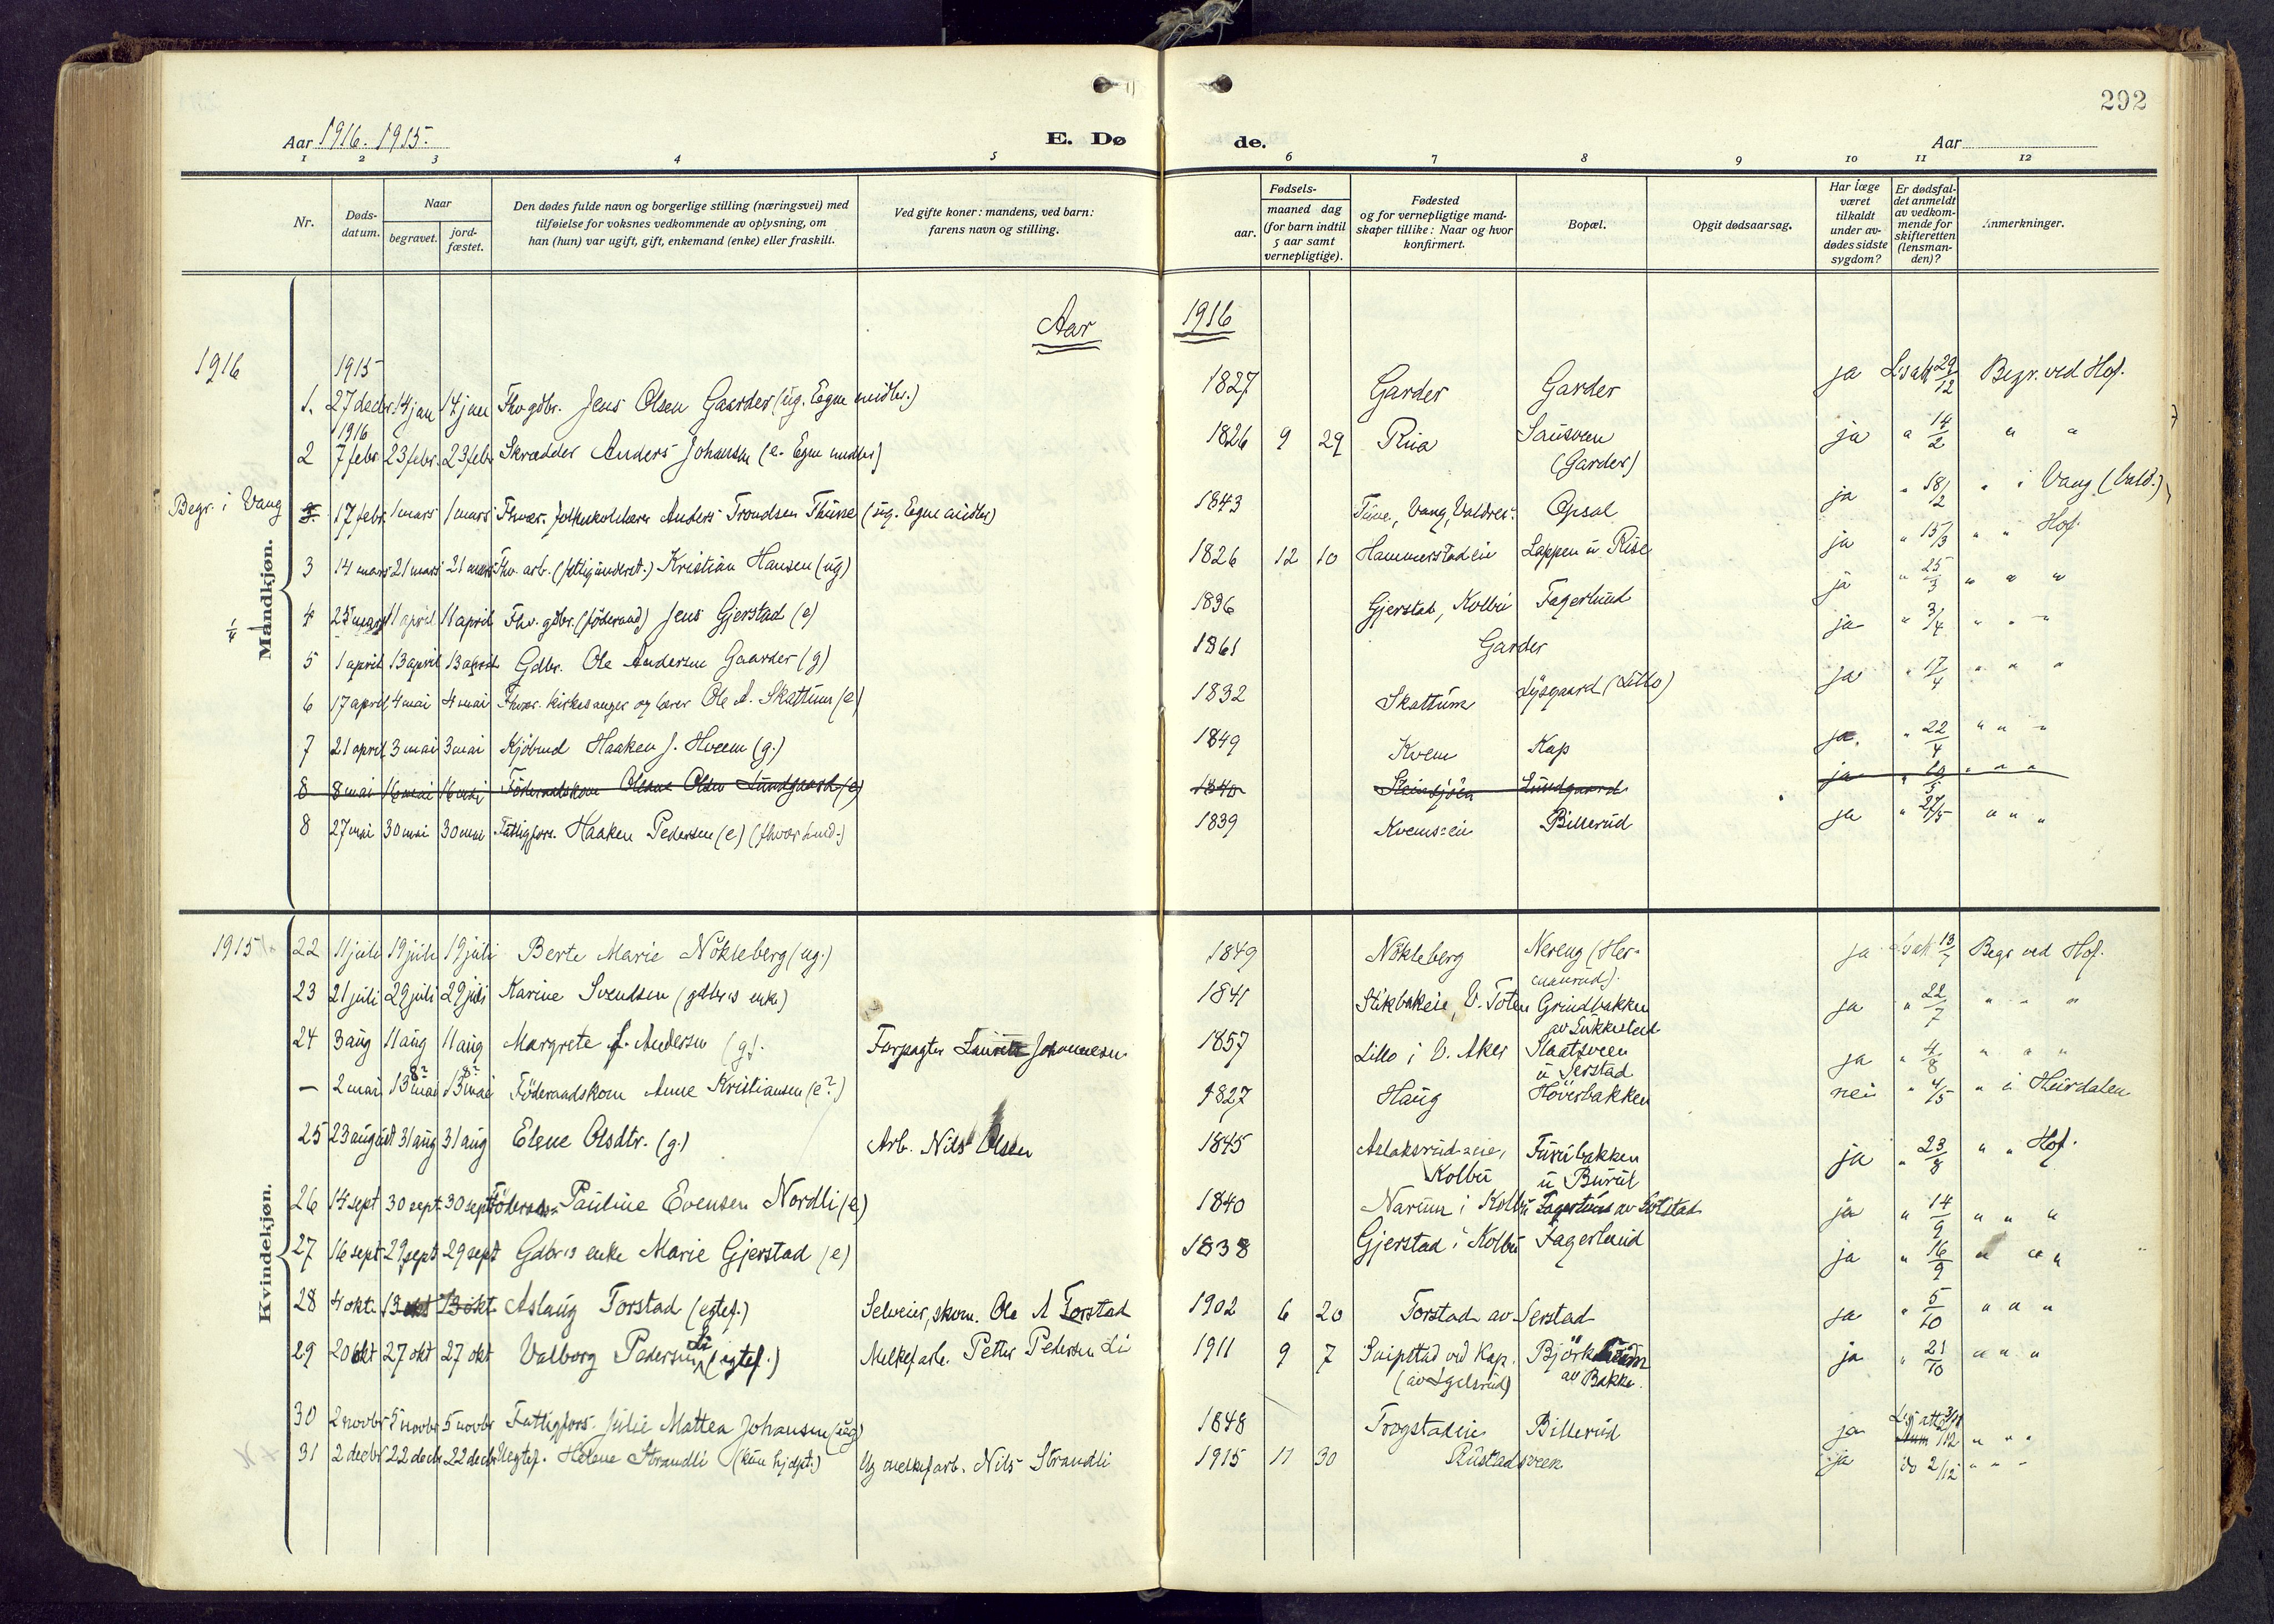 292
Aar 1916. 1915.
E. Dø
de.
Aar
1 2 3 4 5 6 7 8 9 10 11 12
Nr.
Døds-
datum.
Naar
begravet.
jord-
fæstet.
Den dødes fulde navn og borgerlige stilling (næringsvei) med
tilføielse for voksnes vedkommende av oplysning, om
han (hun) var ugift, gift, enkemand (enke) eller fraskilt.
Ved gifte koner: mandens, ved barn:
farens navn og stilling.
Fødsels-
aar.
maaned dag
(for barn indtil
5 aar samt
vernepligtige).
Fødested
og for vernepligtige mand-
skaper tillike: Naar og hvor
konfirmert.
Bopæl.
Opgit dødsaarsag.
Har læge
været
tilkaldt
under av-
dødes sidste
sygdom?
Er dødsfal-
det anmeldt
av vedkom-
mende for
skifteretten
(lensman-
den)?
Anmerkninger.
Aar 1916
1916
Mandkjøn.
1915
1. 27 decbr. 14 jan 14 jan Fhv gdbr. Jens Olsen Gaarder (ug. Egne midler.) 1827 Garder Garder ja 29/12 Begr. ved Hof.
1916
2 7 febr. 23 febr. 23 febr Skrædder Anders Johansen (e. Egne midler) 1826 9 29 Rua Sausveen (Garder) ja " 14/2 " "
Begr. i Vang 17 febr. 1 mars 1 mars Anders Trondsen Thune (ug. Egne midler) 1843 Tune, Vang, Valdres. Opsal ja " 18/2 " i Vang (Vald.)
3 14 mars 21 mars 21 mars Fhv. arb. Kristian Hansen (ug) 1826 12 10 Hammerstadeie Lappen u Rise ja " 15/3 " " Hof.
4 25 mars 11 april 11 april Fhv. gdbr. (föderaad) Jens Gjerstad (e) 1836 Gjerstad, Kolbu Fagerlund ja " 25/3 " " "
5 1 april 13 april 13 april Gdbr. Ole Andersen Gaarder (g) 1861 Garder ja " 3/4 " " "
6 17 april 4 mai 4 mai Fhvær. kirkesanger og lærer Ole A. Skattum (e) 1832 Skattum Lysgaard (Lillo) ja " 17/4 " " "
7 21 april 3 mai 3 mai Kjöbmd Haaken J. Hveem (g.) 1849 Kvem Kap ja. " 22/4 " " "
8 8 mai 16 mai 16 mai Föderaadskone Oleane Olsen Lundgaard (e) 1840 Lundgaard ja " 10/5 " " "
8 27 mai 30 mai 30 mai Fattigfors. Haaken Pedersen (e) 1839 Kvemseie Billerud ja " 27/5 " " "
Kvindekjøn.
1915 22 11 juli 19 juli 19 juli Berte Marie Nökleberg (ug.) 1849 Nökleberg Nereng (Her-
manrud). ja 13/7 Begr ved Hof.
23 21 juli 29 juli 29 juli Karine Svendsen (gdbrs enke) 1841 Stikbakeie, V. Toten Grindbakken
av Lukkestad ja " 22/7 " " "
24 3 aug 11 aug 11 aug Margrete J. Andersen (g). Forpagter Laurits Johannesen. 1857 Lillo i V. Aker Slaatsveen
u Jerstad ja " 4/8 " " "
— 2 mai 13 mai 8? 13 mai 8? Föderaadskone Anne Kristiansen (e?) 1827 Haug Höversbakken nei " 4/5 " i Heirdalen
25 23 august 31 aug 31 aug Elene Olsdtr. (g.) Arb. Nils Olsen 1845 Aslaksrud-eie,
Kolbu Furubakken
u Burul ja " 23/8 " " Hof.
26 14 sept 30 sept 30 sept Pauline Evensen Nordli (e) 1840 Narum i Kolbu ja " 14/9 " " "
27 16 sept 29 sept 29 sept Gdbrs enke Marie Gjerstad (e) 1838 Gjerstad i Kolbu Fagerlund ja " 16/9 " " "
28 4 okt. 13 okt 13 okt Aslaug Torstad (egtef.) Selveier, skom. Ole A Torstad 1902 6 20 Torstad av Jerstad ja " 5/10 " " "
29 20 okt 27 okt 27 okt Valborg Pedersen Li (egtef.) Melkefarb. Petter Pedersen Li 1911 9 7 Snipstad ved Kap.
av Bakke. ja " 21/10 " " "
30 2 novbr 5 novbr 5 novbr Fattigfors. Julie Mattea Johansen (ug) 1848 Trogstadeie Billerud ja " " "
31 2 decbr 22 decbr 22 decbr Uegtef. Helene Strandli (kun hjdpt.) Ug melkefarb. Nils Strandli 1915 11 30 Rustadsveen ja do 2/12 " " "